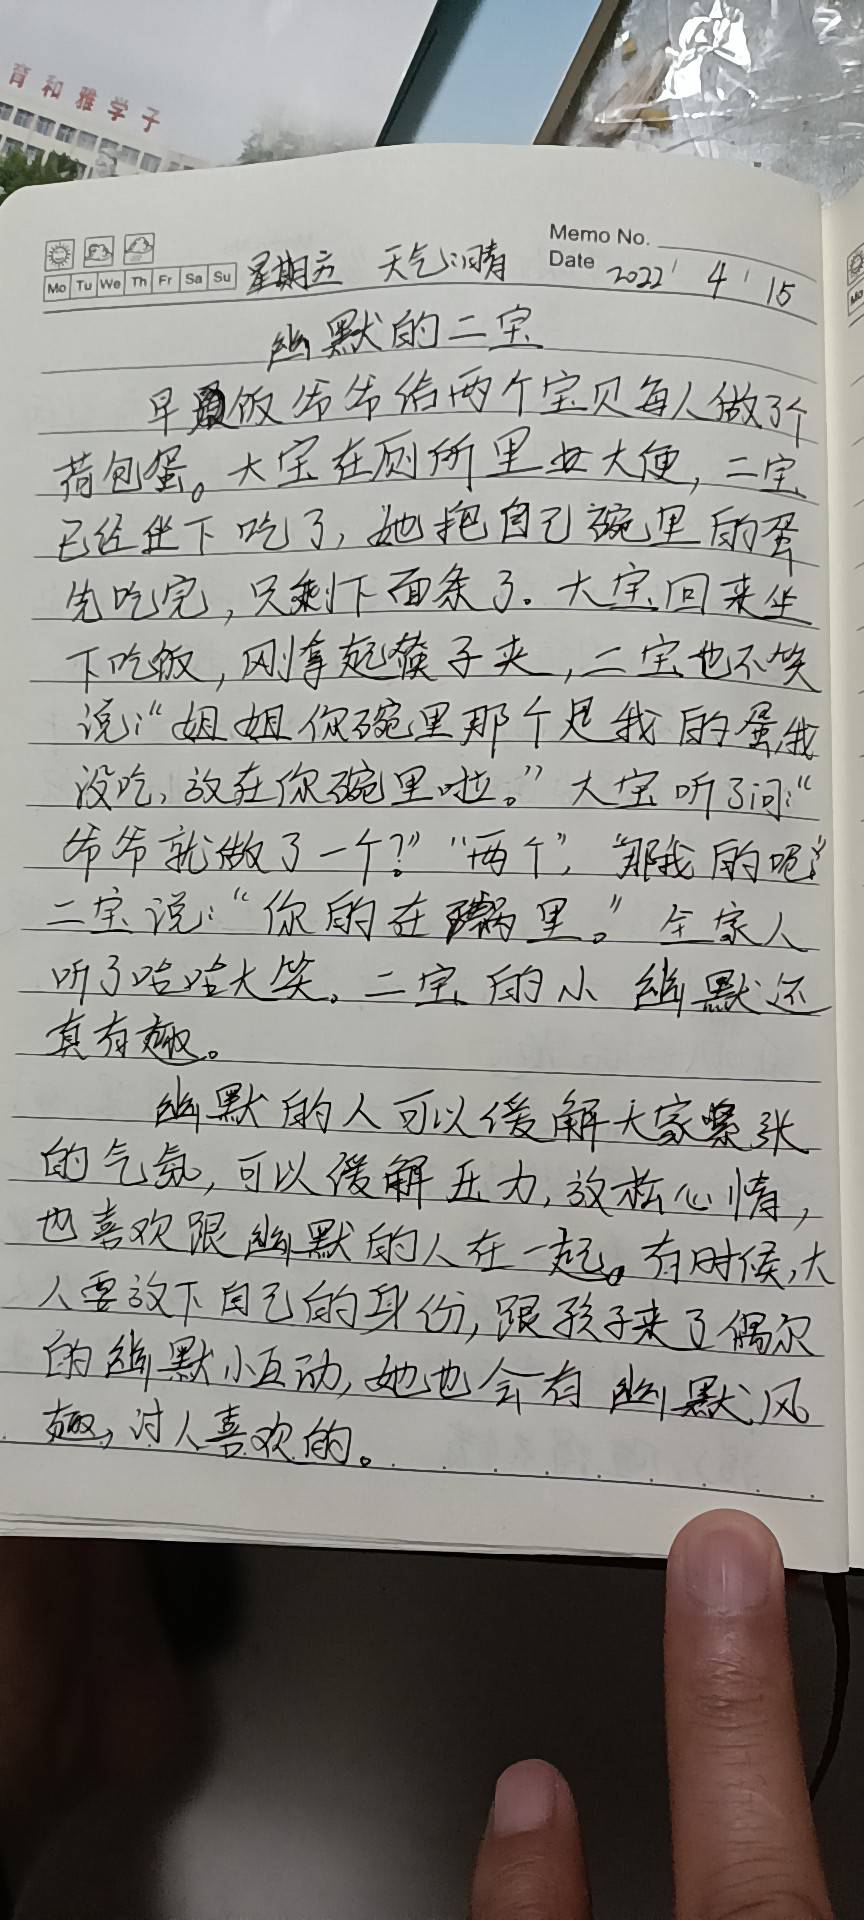 育和雅学子
Memo No.
Mo Tu We Th Fr Sa Su 星期五 天气:晴 Date 2022 4 15
幽默的二宝
早饭爷爷给两个宝贝每人做了个
荷包蛋。大宝在厕所里大便，二宝
已经坐下吃了，她把自己碗里的蛋
先吃完，只剩下面条了。大宝回来坐
下吃饭，刚拿起筷子夹，二宝也不笑
说:“姐姐你碗里那个是我的蛋,我
没吃，放在你碗里啦。”大宝听了问:“
爷爷就做了一个?”“两个”，“那我的呢?”
二宝说:“你的在锅里。”全家人
听了哈哈大笑。二宝的小幽默还
真有趣。
幽默的人可以缓解大家紧张
的气氛，可以缓解压力，放松心情，
也喜欢跟幽默的人在一起。有时候,大
人要放下自己的身份，跟孩子来了偶尔
的幽默小互动，她也会有幽默风
趣，讨人喜欢的。